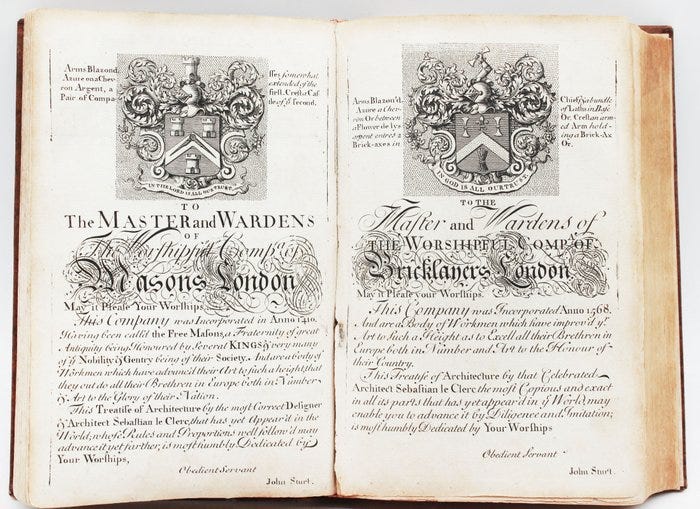 Arms Blazond.
Azure on a Chev-
ron Argent, a
Pair of Compa
sses somewhat
extended of the
first. Crest a Cas
tle of yͤ second.
IN THE LORD IS ALL OUR TRUST.
TO
The MASTER and WARDENS
OF
The Worshipful Compᵃ. of
Masons London
May it Please Your Worships.
This Company was Incorporated in Anno 1410.
Having been call'd the Free Masons, a Fraternity of great
Antiquity being Honoured by Several KINGS & very many
of yͤ Nobility & Gentry being of their Society. And are a body of
Workmen which have advanc'd their Art to such a height, that
they out do all their Brethren in Europe both in Number
& Art to the Glory of their Nation.
This Treatise of Architecture by the most Correct Designer
& Architect Sebastian le Clerc, that has yet Appear'd in the
World; whose Rules and Proportions well follow'd may
advance it yet further, is most humbly Dedicated by
Your Worships,
Obedient Servant
John Sturt.
Arms Blazon'd.
Azure a Chev-
ron Or between
a Flower de lys
2
Brick-axes in
Chief & a bundle
of Laths in Base
Or. Crest an arm-
ed Arm hold-
ing a Brick-Ax
Or.
IN GOD IS ALL OUR TRUST.
TO THE
Master and Wardens of
THE WORSHIPFUL COMPᵃ. OF
Bricklayers London
May it Please your Worships.
This Company was Incorporated Anno 1568.
And are a Body of Workmen which have improv'd yͬ.
Art to Such a Height as to Excell all their Brethren in
Europe both in Number and Art to the Honour of
their Country.
This Treatise of Architecture by that Celebrated
Architect Sebastian le Clerc the most Copious and exact
in all its parts that has yet appear'd in yͤ World, may
enable you to advance it by Diligence and Imitation;
is most humbly Dedicated by Your Worships
Obedient Servant
John Sturt.